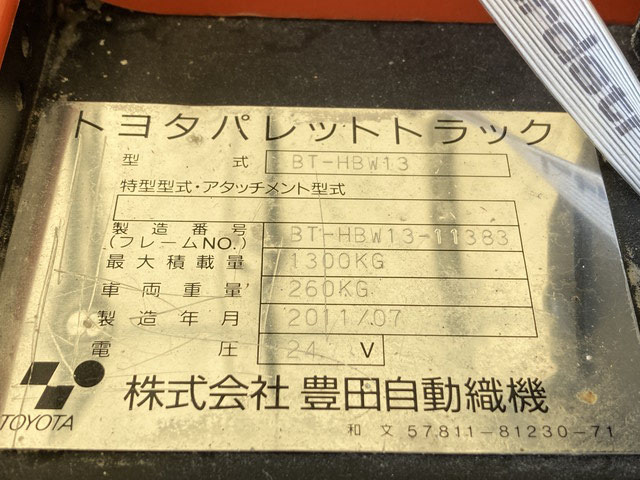 トヨタパレットトラック
型式 BT-HBW13
特型型式・アタッチメント型式
製造番号 BT-HBW13-11383
(フレームNO.)
最大積載量 1300KG
車両重量 260KG
製造年月 2011/07
電圧 24 V
株式会社 豊田自動織機
TOYOTA
和文 57811-81230-71